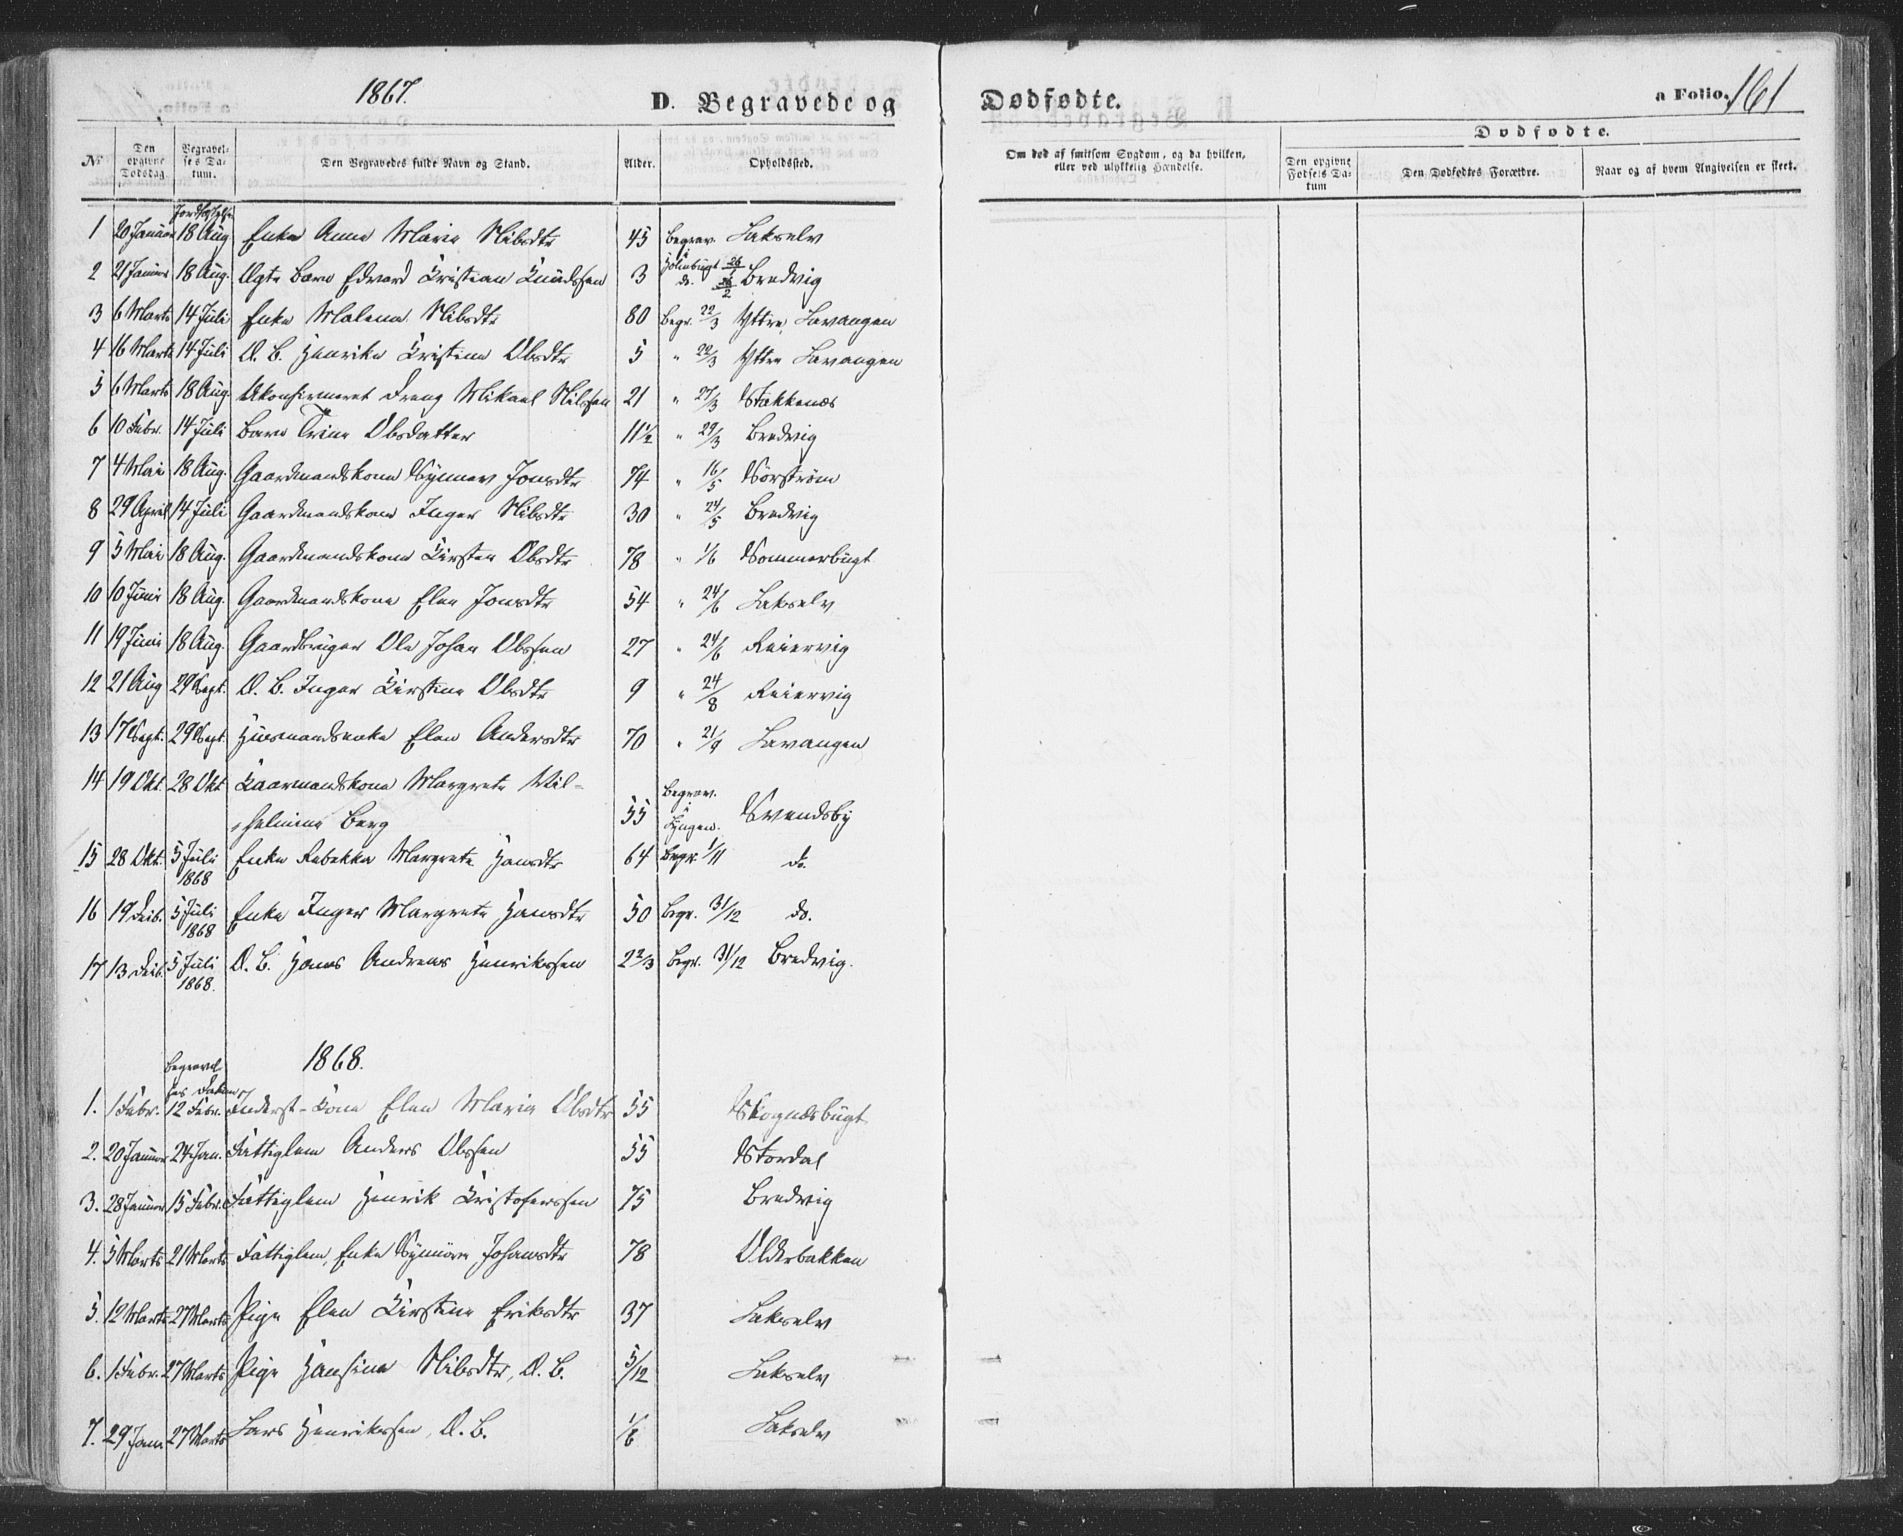 1867.
D. Begravede og
Dødfødte.
a Folio. 161
No
Den opgivne Dødsdag
Begravelses Datum.
Den Begravedes fulde Navn og Stand.
Alder.
Opholdssted.
Om død af smitsom Sygdom, og da hvilken, eller ved ulykkelig Hændelse.
Dødfødte.
Den opgivne Fødsels Datum
Den Dødfødtes Forældre.
Naar og af hvem Angivelsen er skeet.
1 20 Januar 18 Aug Enke Anne Marie Nilsdtr 45 begrav. i Holmbugt 26/1 Lakselv
2 21 Januar 18 Aug. Ægte Barn Edvard Cristian Knudssen 3 do. 26/2 Bredvig
3 6 Marts 14 Juli Enke Malena Nilsdtr 80 Begr. 22/3 Yttre Lavangen
4 16 Marts 14 Juli Æ. B. Henrika Cristina Olsdtr 5 " 22/3 Yttre Lavangen
5 6 Marts 18 Aug. Ukonfirmeret Dreng Mikael Nilssen 21 " 27/3 Stakkenæs
6 10 Febr. 14 Juli Barn Trine Olsdatter 11 1/2 " 29/3 Bredvig
7 4 Mai 18 Aug. Gaardmandskone Synnev Jonsdtr 74 " 16/5 Sørstrøm
8 29 April 14 Juli Gaardmandskone Inger Nilsdtr 30 " 24/5 Bredvig
9 5 Mai 18 Aug. Gaardmandskone Kirsten Olsdtr 78 " 1/6 Sommerbugt
10 10 Juni 18 Aug. Gaardmandskone Elen Jonsdtr 54 " 24/6 Lakselv
11 19 Juni 18 Aug. Gaardbruger Ole Johan Olssen 27 " 24/6 Reiervig
12 21 Aug 29 Sept. Æ. B. Inger Kirstine Olsdtr 9 " 24/8 Reiervig
13 17 Sept. 29 Sept. Husmandsenke Elen Andersdtr 70 " 21/9 Lavangen
14 19 Okt 28 Okt Gaarmandskone Margrete Vil-
helmine Berg 55 begrav. i Lyngen. Svendsby
15 28 Okt. 5 Juli 1868 Enke Rebekka Margrete Hansdtr 64 Begr. 1/11 do.
16 19 Deib. 5 Juli 1868 Enke Inger Margrete Hansdtr 50 Begr. 31/12 do.
17 13 Deib. 5 Juli 1868. Æ. B. Hans Andreas Henrikssen 2 2/3 Begr. 31/12 Bredvig.
1868.
1. 1 Febr. 12 Febr. Inderst-Kone Elen Maria Olsdtr 55 Skognæsbugt
2. 20 Januar 24 Jan. Fattiglem Anders Olssen 55 Stordal
3. 28 Januar 15 Febr. Fattiglem Henrik Kristoferssen 75 Bredvig
4. 5 Marts 21 Marts Fattiglem, Enke Synnøve Johansdtr 78 Olderbakken
5. 12 Marts 27 Marts Pige Elen Kirstine Eriksdtr 37 Lakselv
6. 1 Febr. 27 Marts Pige Hansine Nilsdtr, Æ. B. 5/12 Lakselv
7. 29 Jan. 27 Marts Lars Henrikssen, Æ. B. 1/6 Lakselv